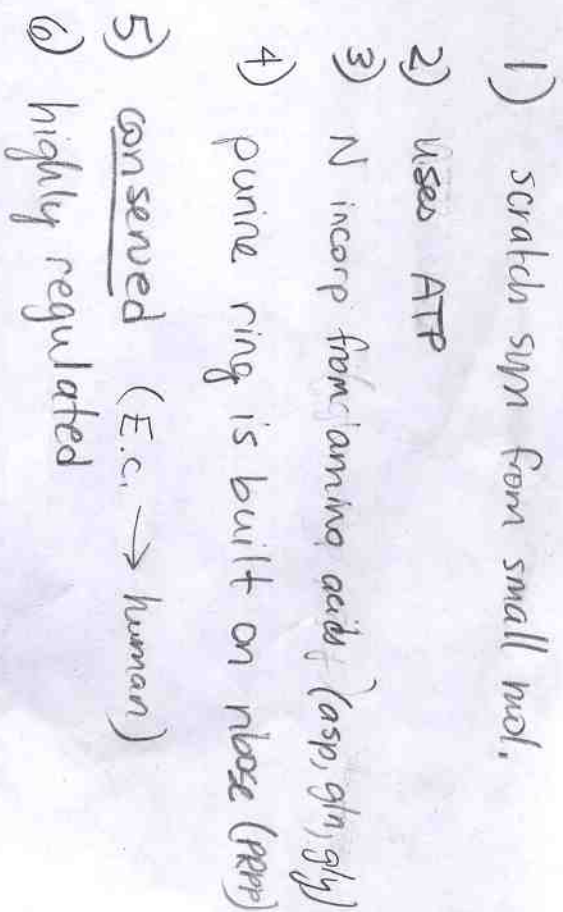 1) scratch syn from small mol.
2) uses ATP
3) N incorp from amino acids (asp, gln, gly)
4) purine ring is built on ribose (PRPP)
5) conserved (E.c. → human)
6) highly regulated